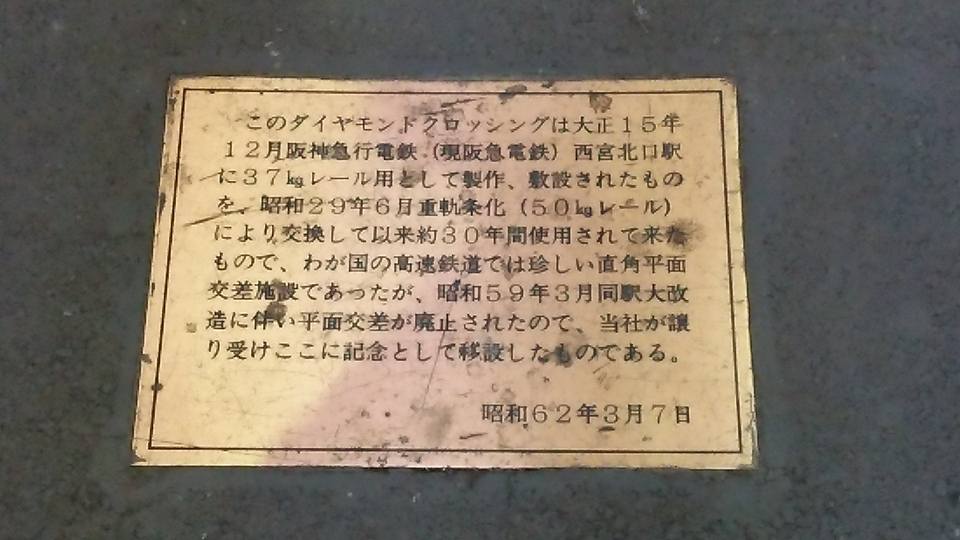 このダイヤモンドクロッシングは大正１５年
１２月阪神急行電鉄（現阪急電鉄）西宮北口駅
に３７㎏レール用として製作、敷設されたもの
を、昭和２９年６月重軌条化（５０㎏レール）
により交換して以来約３０年間使用されて来た
もので、わが国の高速鉄道では珍しい直角平面
交差施設であったが、昭和５９年３月同駅大改
造に伴い平面交差が廃止されたので、当社が譲
り受けここに記念として移設したものである。
昭和６２年３月７日